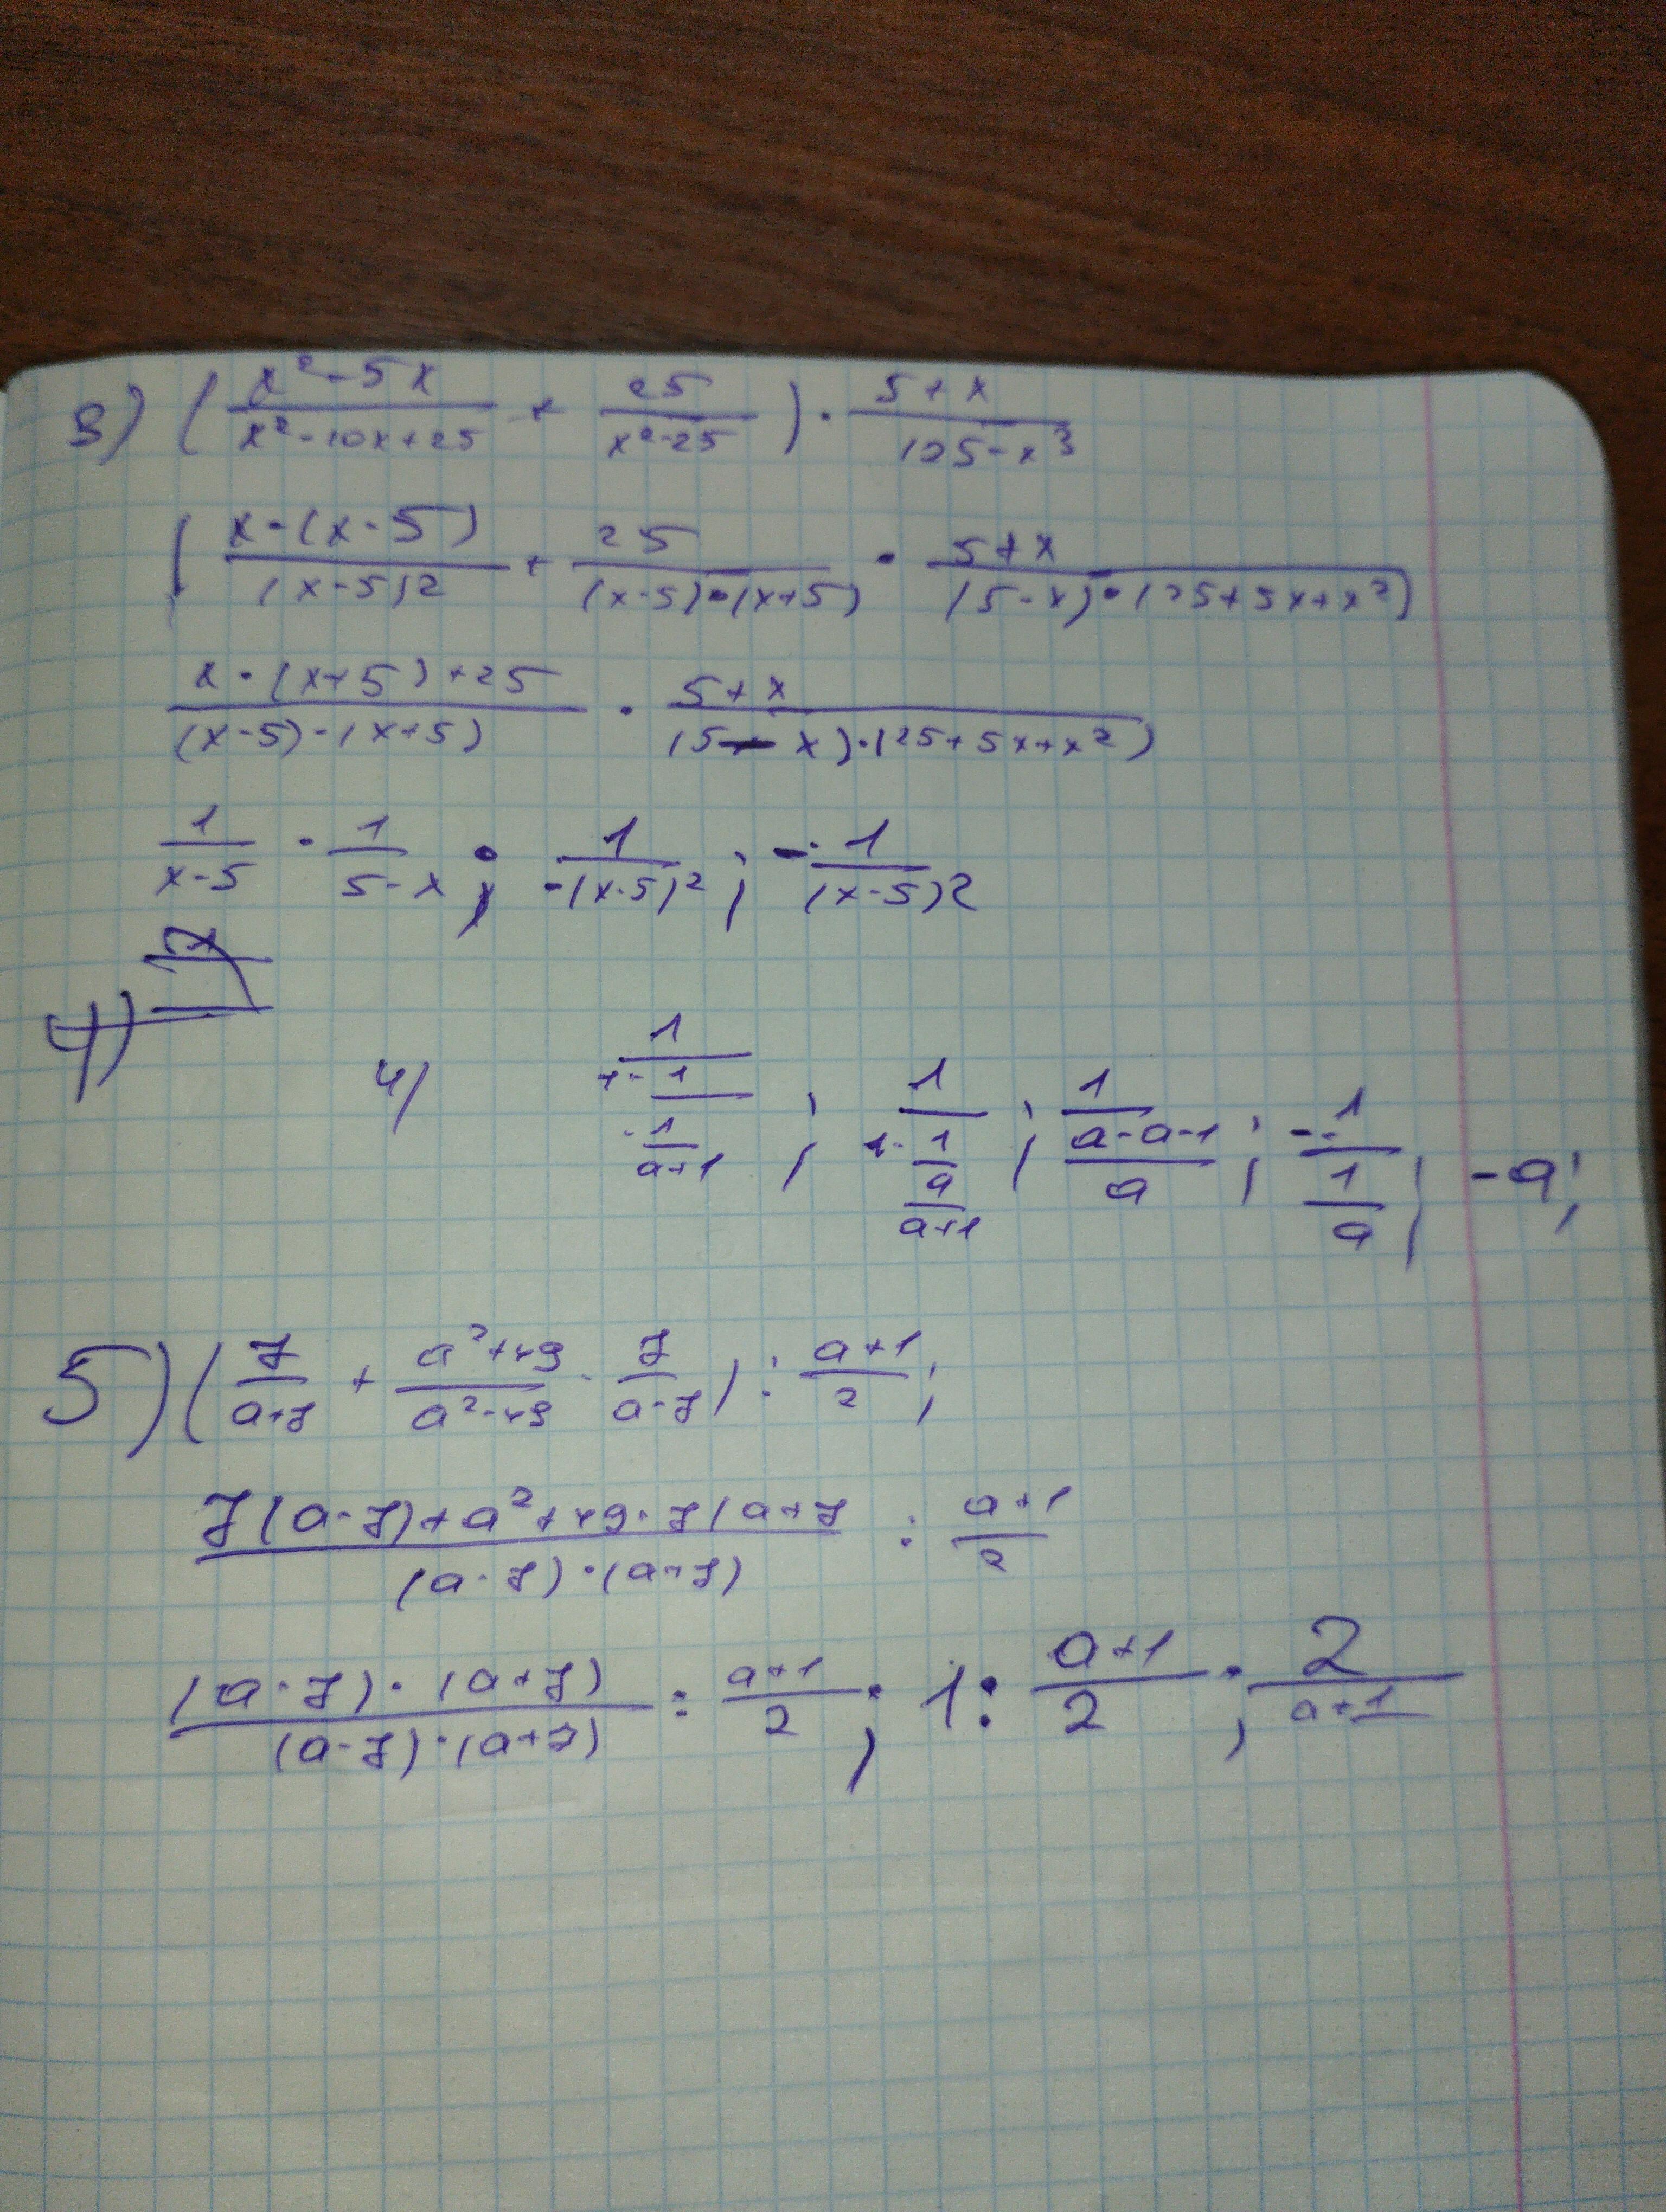 3) ( (x²-5x)/(x²-10x+25) + 25/(x²-25) ) · (5+x)/(125-x³)
( x·(x-5)/(x-5)2 + 25/((x-5)·(x+5)) · (5+x)/((5-x)·(25+5x+x²))
(x·(x+5)+25)/((x-5)·(x+5)) · (5+x)/((5-x)·(25+5x+x²))
1/(x-5) · 1/(5-x) ; 1/(-(x-5)²) ; - 1/(x-5)2
4)
4) 1/(1-1/(1-1/(a+1))) ; 1/(1-1/(a/(a+1))) ; 1/((a-a-1)/a) ; - 1/(1/a) ; -a;
5) ( 7/(a+7) + (a²+49)/(a²-49) - 7/(a-7) ) : (a+1)/2 ;
(7(a-7)+a²+49-7(a+7)/((a-7)·(a+7)) : (a+1)/2
((a-7)·(a+7))/((a-7)·(a+7)) : (a+1)/2 ; 1: (a+1)/2 ; 2/(a+1)